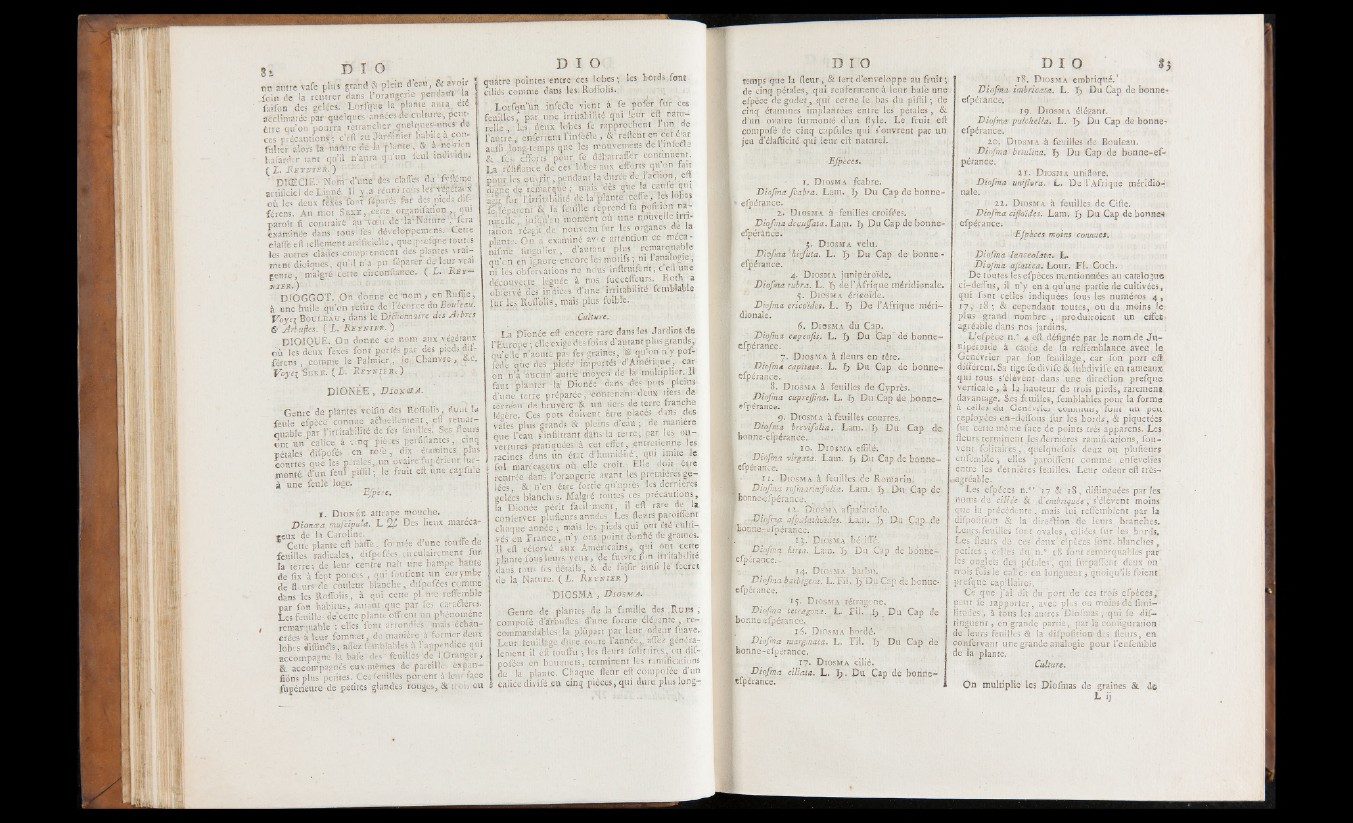 82 D I O
un autre vase plus grand & plein d'eau, & avoir
soin de la rentrer dans l'orangerie pendant la
saison des gelées. Lorsque la plante aura été
acclimatée par quelques années de culture, peut-
être qu'on pourra retrancher quelques-unes de
ces précautions; c'est au Jardinier habile à con-
sulter alors la nature de la plante, & à ne rien
hasarder tant qu'il n'aura qu'un seul individu.
( L. REYNIER. )
DIŒCIE. Nom d'une des classes du système
artificiel de Linné. Il y a réuni tous les végétaux
où les deux sexes sont séparés sur des pieds dif-
férens. Au mot SEXE, cette organisation, qui
paroît si contraire au vœu de la Nature, sera
examinée dans tous ses développemens. Cette
classe est tellement artificielle, que presque toutes
les autres classes comprennent des plantes vrai-
ment dioïques, qu'il n'a pu séparer de leur vrai
genre, malgré cette circonstance. ( L. REY-
NIER. )
DIOGGOT. On donne ce nom, en Russie,
à une huile qu'on retire de l'écorce du Bouleau.
Voyez BOULEAU, dans le Dictionnaire des Arbres
& Arbustes. ( L. REYNIER. )
DIOIQUE. On donne ce nom aux végétaux
où les deux sexes sont portés par des pieds dif-
férens, comme le Palmier, le Chanvre, &c.
Voyez SEXE. ( L. REYNIER. )
DIONÉE, DIONÆA.
Genre de plantes voisin des Rossolis, dont la
seule espèce connue actuellement, est remar-
quable par l'irritabilité de ses feuilles. Ses fleurs
ont un calice à cinq pièces persistantes, cinq
pétales disposés en rose, dix étamines plus
courtes que les pétales, un ovaire supérieur sur-
monté d'un seul pistil; le fruit est une capsule
à une seule loge.
Espèce.
1. DIONÉE attrape mouche.
Dionæa muscipula. L. ♃ Des lieux maréca-
geux de la Caroline.
Cette plante est basse, formée d'une touffe de
feuilles radicales, disposées circulairement sur
la terre; de leur centre naît une hampe haute
de six à sept pouces, qui soutient un corymbe
de fleurs de couleur blanche, disposées comme
dans les Rossolis, à qui cette plante ressemble
par son habitus, autant que par ses caractères.
Les feuilles de cette plante offrent un phénomène
remarquable: elles sont arrondies mais échan-
crées à leur sommet, de manière à former deux
lobes distincts, assez semblables à l'appendice qui
accompagne la base des feuilles de l'Oranger,
& accompagnés eux-mêmes de pareilles expan-
sions plus petites. Ces feuilles portent à leur face
supérieure de petites glandes rouges, & trois ou
D I O
quatre pointes entre ces lobes; les bords sont
ciliés comme dans les Rossolis.
Lorsqu'un insecte vient à se poser sur ces
feuilles, par une irritabilité qui leur est natu-
relle, les deux lobes se rapprochent l'un de
l'autre, enferrent l'insecte, & restent en cet état
aussi long-temps que les mouvemens de l'insecte
& ses efforts pour se débarrasser continuent.
La résistance de ces lobes aux efforts qu'on fait
pour les ouvrir, pendant la durée de l'action, est
digne de remarque; mais dès que la cause qui
agit sur l'irritabilité de la plante, cesse, les lobes
se séparent & la feuille reprend sa position na-
turelle, jusqu'au moment où une nouvelle irri-
tation réagit de nouveau sur les organes de la
plante. On a examiné avec attention ce méca-
nisme singulier, d'autant plus remarquable
qu'on en ignore encore les motifs; ni l'analogie,
ni les observations ne nous instruisent, c'est une
découverte léguée à nos successeurs. Roth a
observé des indices d'une irritabilité semblable
sur les Rossolis, mais plus foible.
Culture.
La Dionée est encore rare dans les Jardins de
l'Europe; elle exige des soins d'autant plus grands,
qu'elle n'aoûte pas ses graines, & qu'on n'y pos-
sède que des pieds importés d'Amérique, car
on n'a aucun autre moyen de la multiplier. Il
faut planter la Dionée dans des pots pleins
d'une terre préparée, contenant deux tiers de
terreau de bruyère & un tiers de terre franche
légère. Ces pots doivent être placés dans des
vases plus grands & pleins d'eau; de manière
que l'eau s'insinuant dans la terre, par les ou-
vertures pratiquées à cet effet, entretienne les
racines dans un état d'humidité, qui imite le
sol marécageux où elle croît. Elle doit être
rentrée dans l'orangerie avant les premières ge-
lées, & n'en être sortie qu'après les dernières
gelées blanches. Malgré toutes ces précautions,
la Dionée périt facilement, il est rare de la
conserver plusieurs années. Les fleurs paroissent
chaque année; mais les pieds qui ont été culti-
vés en France, n'y ont point donné de graines.
Il est réservé aux Américains, qui ont cette
plante sous leurs yeux, de suivre son irritabilité
dans tous ses détails, & de saisir ainsi le secret
de la Nature. ( L. REYNIER )
DIOSMA, DIOSMA.
Genre de plantes de la famille des RUES,
composé d'arbustes d'une forme élégante, re-
commandables la plûpart par leur odeur suave.
Leur feuillage dure toute l'année, assez généra-
lement il est touffu; les fleurs solitaires, ou dis-
posées en bouquets, terminent les ramifications
de la plante. Chaque fleur est composée d'un
calice divisé en cinq pièces, qui dure plus long-
D I O
temps que la fleur, & sert d'enveloppe au fruit;
de cinq pétales, qui renferment à leur base une
espèce de godet, qui cerne le bas du pistil; de
cinq étamines implantées entre les pétales, &
d'un ovaire surmonté d'un style. Le fruit est
composé de cinq capsules qui s'ouvrent par un
jeu d'élasticité qui leur est naturel.
Espèces.
1. DIOSMA scabre.
Diosma scabra. Lam. ♄ Du Cap de bonne-
espérance.
2. DIOSMA à feuilles croisées.
Diosma decussata. Lam. ♄ Du Cap de bonne-
espérance.
3. DIOSMA velu.
Diosma hirsuta. L. ♄ Du Cap de bonne-
espérance.
4. DIOSMA junipéroïde.
Diosma rubra. L. ♄ de l'Afrique méridionale.
5. DIOSMA éricoïde.
Diosma ericoides. L. ♄ De l'Afrique méri-
dionale.
6. DIOSMA du Cap.
Diosma capensis. L. ♄ Du Cap de bonne-
espérance.
7. DIOSMA à fleurs en tête.
Diosma capitata. L. ♄ Du Cap de bonne-
espérance.
8. DIOSMA à feuilles de Cyprès.
Diosma cupressina. L. ♄ Du Cap de bonne-
espérance.
9. DIOSMA à feuilles courtes.
Diosma brevifolia. Lam. ♄ Du Cap de
bonne-espérance.
10. DIOSMA effilé.
Diosma virgata. Lam. ♄ Du Cap de bonne-
espérance.
11. DIOSMA à feuilles de Romarin.
Diosma rosmarinifolia. Lam. ♄ Du Cap de
bonne-espérance.
12. DIOSMA aspalatoïde.
Diosma aspalathoides. Lam. ♄ Du Cap de
bonne-espérance.
13. DIOSMA hérissé.
Diosma hirta. Lam. ♄ Du Cap de bonne-
espérance.
14. DIOSMA barbu.
Diosma barbigera. L. Fil. ♄ Du Cap de bonne-
espérance.
15. DIOSMA tétragone.
Diosma tetragona. L. Fil. ♄ Du Cap de
bonne-espérance.
16. DIOSMA bordé.
Diosma marginata. L. Fil. ♄ Du Cap de
bonne-espérance.
17. DIOSMA cilié.
Diosma ciliata. L. ♄. Du Cap de bonne-
espérance.
D I O 83
18. DIOSMA embriqué.
Diosma imbricata. L. ♄ Du Cap de bonne-
espérance.
19. DIOSMA élégant.
Diosma pulchella. L. ♄ Du Cap de bonne-
espérance.
20. DIOSMA à feuilles de Bouleau.
Diosma betulina. ♄ Du Cap de bonne-es-
pérance.
21. DIOSMA uniflore.
Diosma uniflora. L. De l'Afrique méridio-
nale.
22. DIOSMA à feuilles de Ciste.
Diosma cistoides. Lam. ♄ Du Cap de bonne-
espérance.
Espèces moins connues.
Diosma lanceolata. L.
Diosma asiatica. Lour. Fl. Coch.
De toutes les espèces mentionnées au catalogue
ci-dessus, il n'y en a qu'une partie de cultivées,
qui sont celles indiquées sous les numéros 4,
17, 18; & cependant toutes, ou du moins le
plus grand nombre, produiroient un effet
agréable dans nos jardins.
L'espèce n.° 4 est désignée par le nom de Ju-
nipéroïde à cause de la ressemblance avec le
Genévrier par son feuillage, car son port est
différent. Sa tige se divise & subdivise en rameaux
qui tous s'élèvent dans une direction presque
verticale, à la hauteur de trois pieds, rarement
davantage. Ses feuilles, semblables pour la forme
à celles du Genévrier commun, sont un peu
reployées en-dessous sur les bords, & piquetées
sur cette même face de points très apparens. Les
fleurs terminent les dernières ramifications, sou-
vent solitaires, quelquefois deux ou plusieurs
ensemble; elles paroissent comme ensevelies
entre les dernières feuilles. Leur odeur est très-
agréable.
Les espèces n.os 17 & 18, distinguées par les
noms de ciliée & d'embriquée, s'élèvent moins
que la précédente, mais lui ressemblent par la
disposition & la direction de leurs branches.
Leurs feuilles sont ovales, ciliées sur les bords.
Les fleurs de ces deux espèces sont blanches,
petites; celles du n.° 18 sont remarquables par
les onglets des pétales, qui surpassent deux ou
trois fois le calice en longueur, quoiqu'ils soient
presque capillaires.
Ce que j'ai dit du port de ces trois espèces,
peut se rapporter, avec plus ou moins de simi-
litudes, à tous les autres Diosmas; qui se dis-
tinguent, en grande partie, par la configuration
de leurs feuilles & la disposition des fleurs, en
conservant une grande analogie pour l'ensemble
de la plante.
Culture.
On multiplie les Diosmas de graines & de
L ij